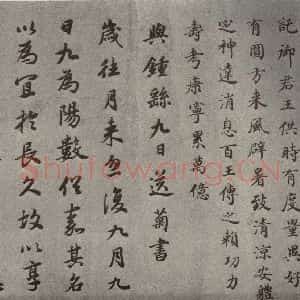 記卿君王供時有度量異好
有圓方來風辟暑致清涼安體
定神達消息百王傳之賴功力
壽考康寧累萬億
與鍾繇九日送菊書
歲往月來忽復九月九
日九為陽數俗嘉其名
以為宜於長久故以享
Shufawang.CN